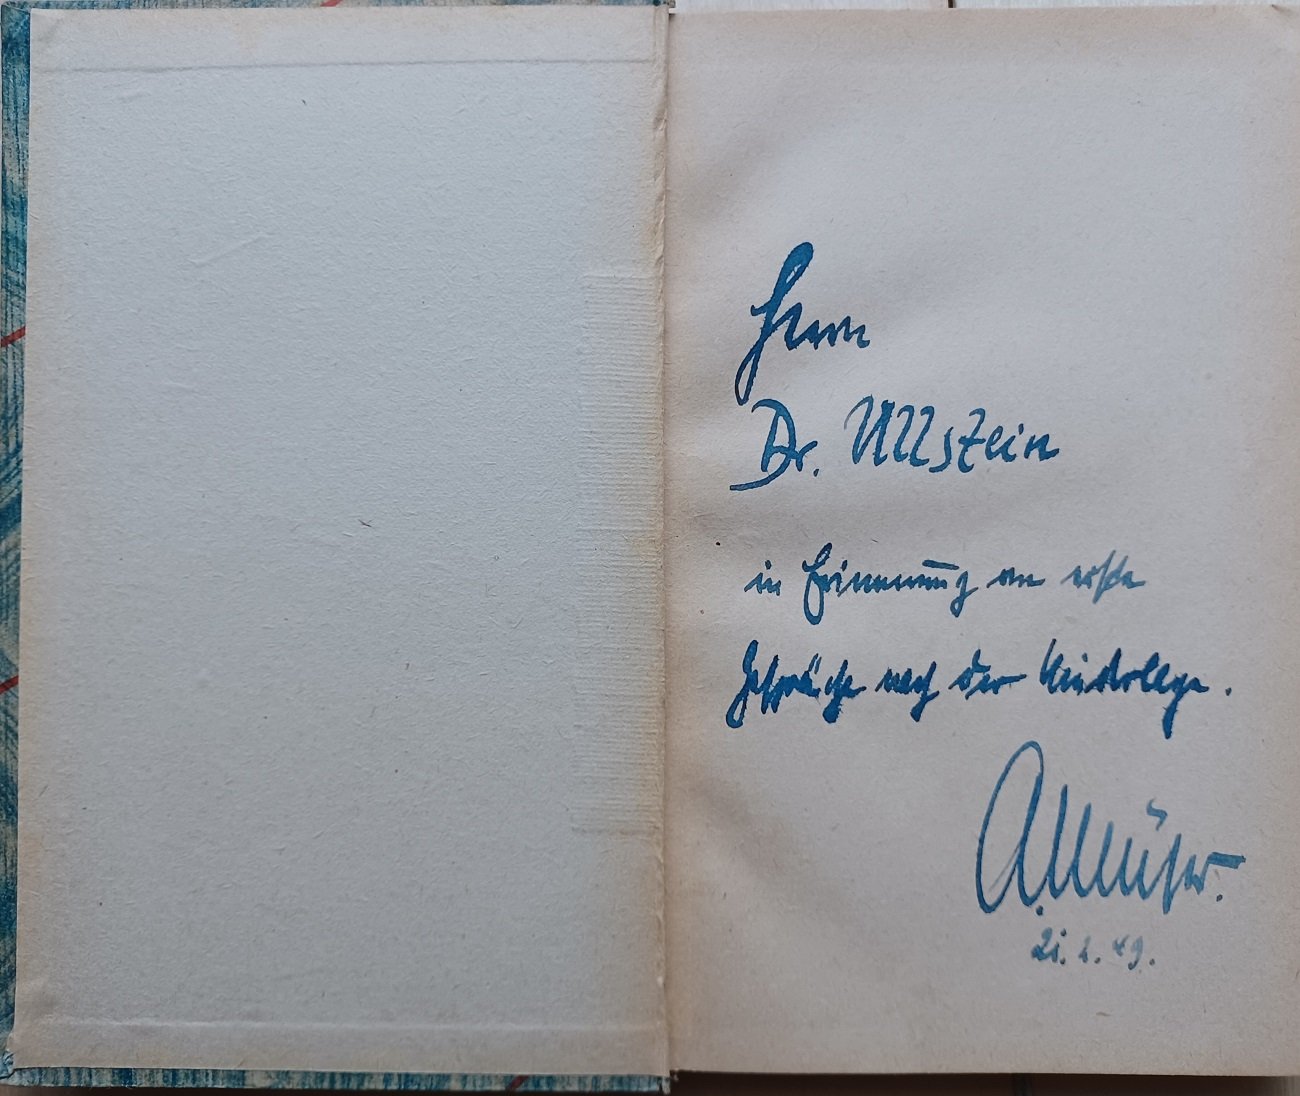 Herrn
Dr. Ullstein
in Erinnerung an erste
Gespräche nach der Niederlage.
21. 2. 49.